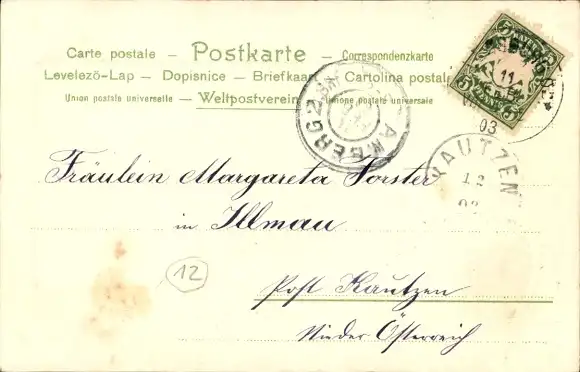 Carte postale — Postkarte — Correspondenzkarte
Levelező-Lap — Dopisnice — Briefkaart — Cartolina postale
Union postale universelle — Weltpostverein — Unione postale universale
5 5
5 5
11
03
AMBERG 2
KAUTZEN
12
03
Fräulein Margareta Forster
in Illmau
12
Post Kautzen
Nieder Österreich